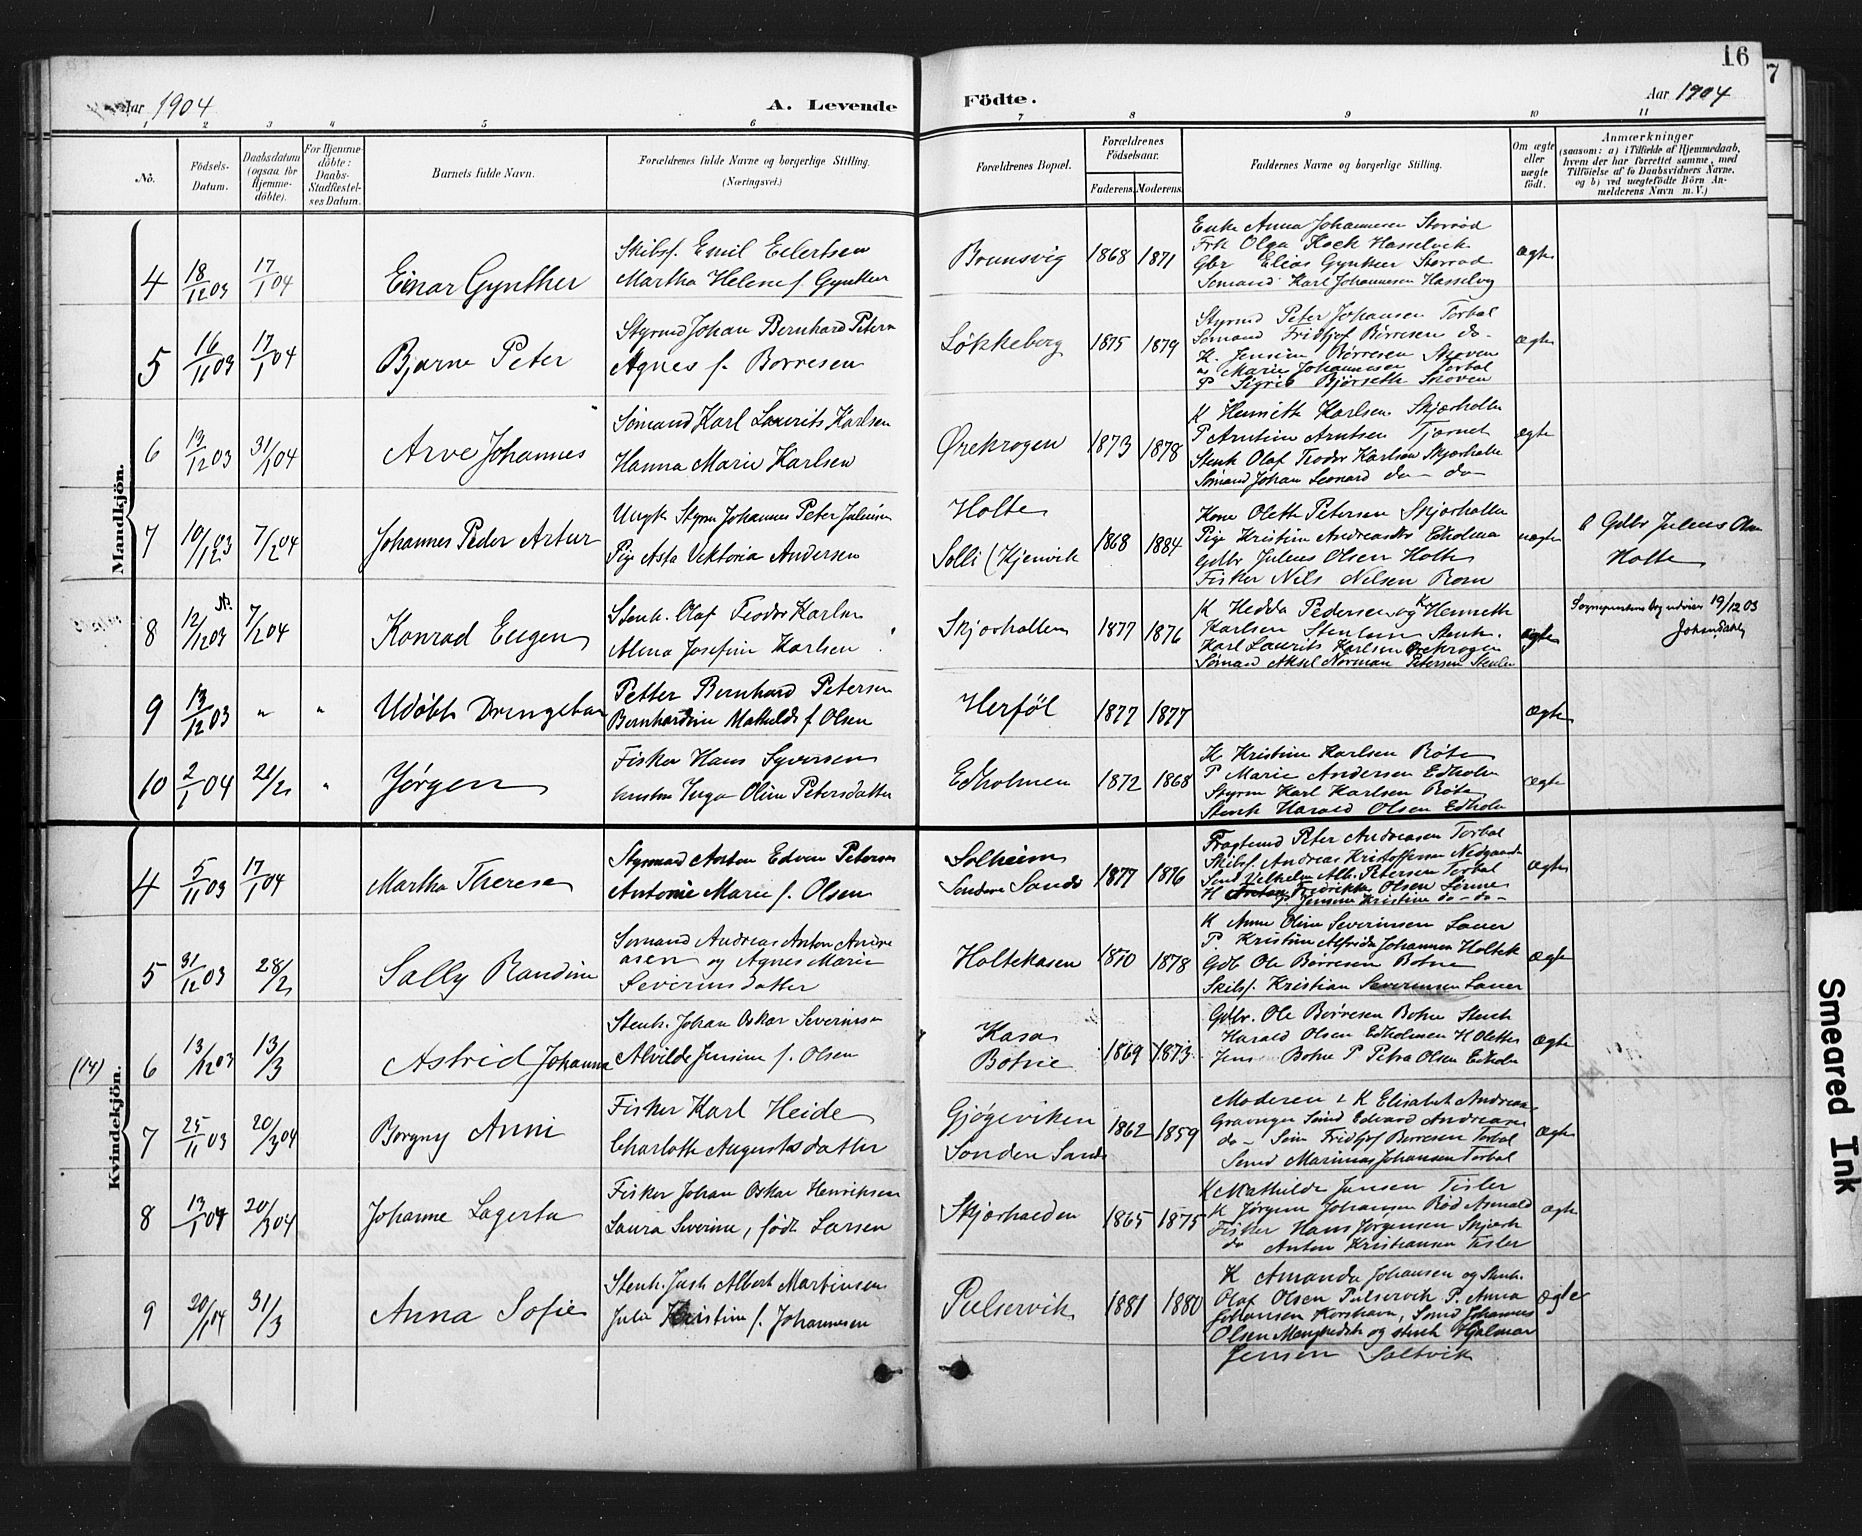 16
7
Aar 1904
A. Levende Födte.
Aar 1904
1 2 3 4 5 6 7 8 9 10 11
No.
Födsels-Datum.
Daabsdatum (ogsaa for Hjemmedöbte).
For Hjemmedöbte: Daabs-Stadfæstelses Datum.
Barnets fulde Navn.
Forældrenes fulde Navne og borgerlige Stilling.
(Næringsvei.)
Forældrenes Bopæl.
Forældrenes Födselsaar.
Faderens. Moderens.
Faddernes Navne og borgerlige Stilling.
Om ægte eller uægte født.
Anmærkninger
(saasom: a) i Tilfælde af Hjemmedaab, hvem der har forrettet samme, med Tilföielse af to Daabsvidners Navne, og b) ved uægtefödte Börn Anmelderens Navn m. V.)
Mandkjön.
4 18/12 03 17/1 04 Einar Gynther
Skibsf. Emil Eilertsen
Martha Helene f. Gynther
Brunsvig 1868 1871
Enke Anna Johannesen Storrød
Frk Olga Kock Hasselvik
Gbr Elias Gynther Storrød
Sømand Karl Johannesen Hasselvig
ægte
5 16/11 03 17/1 04 Bjarne Peter
Styrmd Johan Bernhard Petersn
Agnes f. Borresen
Løkkeberg 1875 1879
Styrmd Peter Johansen Torbal
Sømand Fridtjof Børresen do.
K. Jensine Børresen Skoven
Marie Johannesen Torbal
P Sigrid Bjørseth Skoven
ægte
6 13/12 03 31/1 04 Arve Johannes
Sømand Karl Laurits Karlsen
Hanna Marie Karlsen
Ørekrogen 1873 1878
K Henriette Karlsen Skjærhallen
P Arntine Arntsen Tjærnet
Stenh Olaf Teodor Karlsen Skjærhallen
Sømand Johan Leonard do – do –
ægte
7 10/12 03 7/2 04 Johannes Peder Artur
Ungk Styrm Johannes Peter Juliussen
Pig Asta Viktoria Andersen
Holte
Solli (Kjenvik 1868 1884
Kone Olette Petersen Skjærhallen
Pige Kristine Andreasdtr Edholmen
Gdbr Julius Olsen Holte
Fisker Nils Nilsen Brom
uægte
Gdbr Julius Olsen
Holte
8 12/12 03 7/2 04 Konrad Eugen
Stenh. Olaf Teodor Karlsen
Alma Josefine Karlsen
Skjærhallen 1877 1876
K Hedda Pedersen og K Henriette
Karlsen Stenlien Stenh.
Karl Laurits Karlsen Ørekrogen
Sømand Aksel Norman Petersen Stenlien
ægte
19/12 03
9 13/12 03 " " Udøbt Drengebarn
Petter Bernhard Petersen
Bernhardine Mathilde f Olsen
Herføl 1877 1877
ægte
10 2/1 04 21/2 " Jørgen
Fisker Hans Syversen
Inga Oline Petersdatter
Edholmen 1872 1868
K Kristine Karlsen Røte
P Marie Andersen Edholm
Styrm Karl Karlsen Røte
Stenh Harald Olsen Edholm
ægte
Kvindekjön.
4 5/11 03 17/1 04 Martha Therese
Styrmand Anton Edvin Petersen
Antonie Marie f. Olsen
Solheim
Søndre Sandø 1877 1876
Fragtemd Peter Andreasen Torbal
Skibsf. Andreas Kristoffersen Nedgaarden
Smd Vilhelm Alb. Petersen Torbal
K Fredrikke Olsen
Jensine Kristine do – do –
ægte
5 31/12 03 28/2 Sally Randine
Sømand Andreas Anton Andre
asen og Agnes Marie
Severinsdatter
Holtekasen 1870 1878
K Anne Oline Severinsen Lauer
P. Kristine Alfrida Johannesen Holtek
Gdb Ole Børresen Botne
Skibsf. Kristian Severinsen Lauer
ægte
(14) 6 13/12 03 13/3 Astrid Johanna
Stenh. Johan Oskar Severinsen
Alvilde Jensine f. Olsen
Kasa
Botne 1869 1873
Gdbr. Ole Børresen Botne Stenh
Harald Olsen Edholmen K Olette
Jens Botne P Petra Olsen Edholm
ægte
7 25/11 03 20/3 04 Borgny Anni
Fisker Karl Heide
Charlotte Augustsdatter
Gjøgeviken
Søndre Sandø 1862 1859
Moderen & K Elisabet Andreasen
Gravningen Smd Edvard Andreasen
do – Søm Fridtjof Børresen Torbal
Smd Marinius Johansen Torbal
ægte
8 13/1 04 20/3 04 Johanne Lagerta
Fisker Johan Oskar Henriksen
Laura Severine, født Larsen
Skjærhalden 1865 1875
K Mathilde Jansen Tisler
K Jørgine Johansen Rød
Fisker Hans Jørgensen Skjærh
do Anton Kristiansen Tisler
ægte
9 20/1 04 31/3 Anna Sofie
Stenh. Albert Martinsen
Julie Kristine f. Johannesen
Pulservik 1881 1880
K Amanda Johansen og Stenh.
Olaf Olsen Pulservik P. Anna
Johansen Korshavn, Smd Johannes
Olsen og stenh Hjalmar
Jensen Saltvik
ægte
Smeared Ink